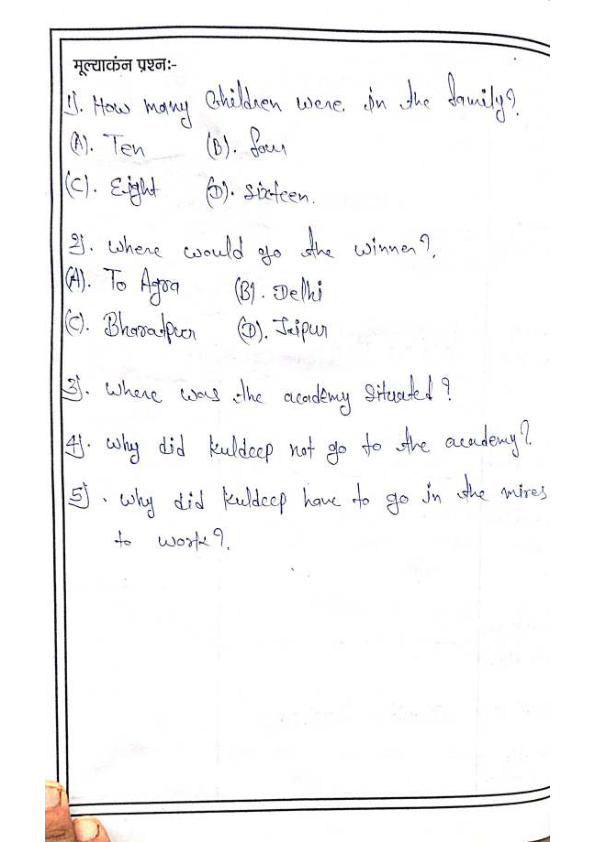 मूल्याकंन प्रश्न:-
1). How many Children were in the family?
(A). Ten (B). four
(C). Eight (D). Sixteen.
2). Where would go the winner?
(A). To Agra (B). Delhi
(C). Bharatpur (D). Jaipur
3). Where was the academy situated?
4). Why did Kuldeep not go to the academy?
5). Why did Kuldeep have to go in the mines
to work?